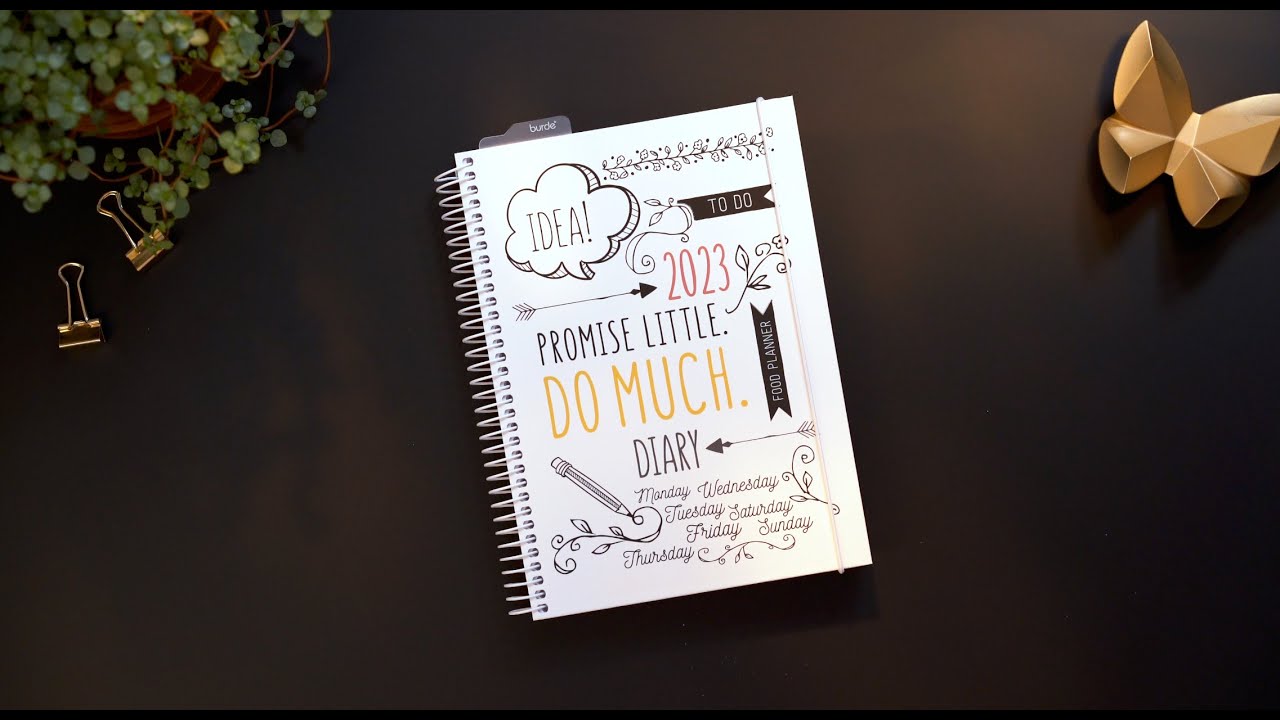 burde
IDEA!
TO DO
2023
PROMISE LITTLE.
DO MUCH.
FOOD PLANNER
DIARY
Monday Wednesday
Tuesday Saturday
Friday Sunday
Thursday